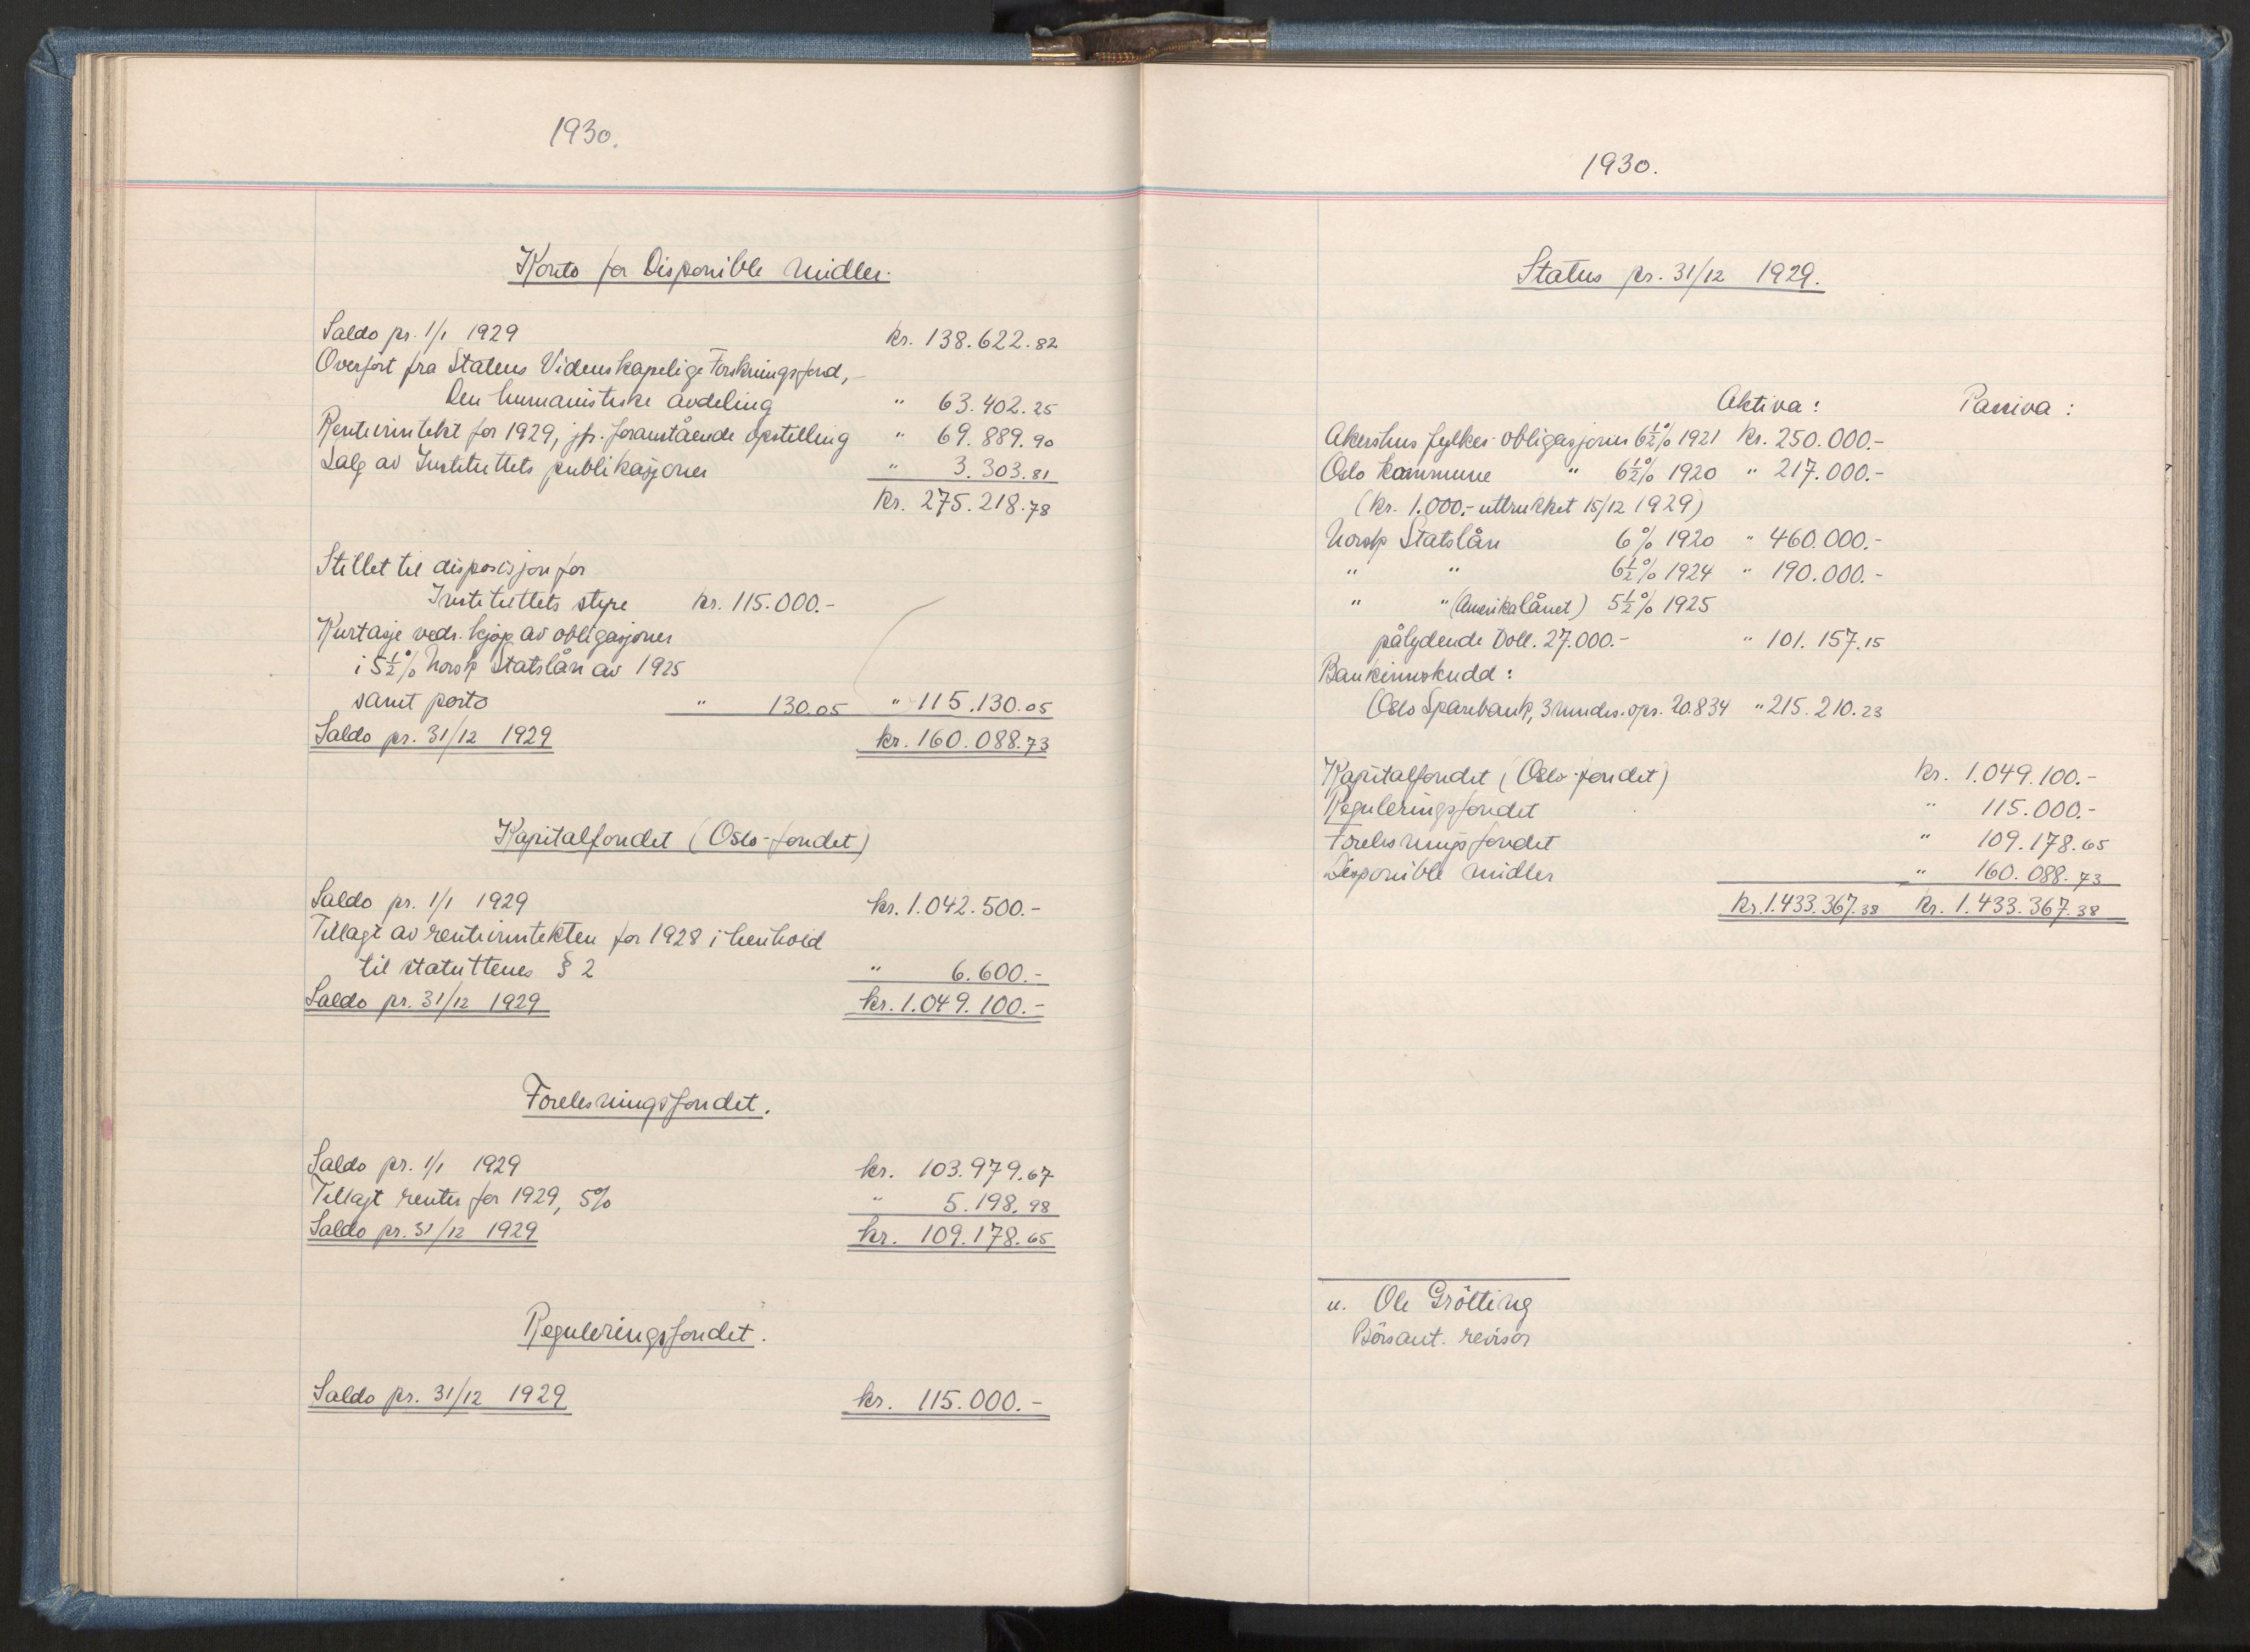 1930.
Konto for Disponible midler.
Saldo pr. 1/1 1929 kr. 138.622.82
Overført fra Statens Videnskapelige Forskningsfond,
Den humanistiske avdeling " 63.402.25
Renteinntekt for 1929, jfr. foranstående opstilling " 69.889.90
Salg av Instituttets publikasjoner " 3.303.81
kr. 275.218.78
Stillet til disposisjon for
Instituttets styre kr. 115.000.-
Kurtasje vedr. kjøp av obligasjoner
i 5½% Norsk Statslån av 1925
samt porto " 130.05 " 115.130.05
Saldo pr. 31/12 1929 kr. 160.088.73
Kapitalfondet (Oslo-fondet)
Saldo pr. 1/1 1929 kr. 1.042.500.-
Tillagt av renteinntekten for 1928 i henhold
til statuttenes § 2 " 6.600.-
Saldo pr. 31/12 1929 kr. 1.049.100.-
Forelesningsfondet.
Saldo pr. 1/1 1929 kr. 103.979.67
Tillagt renter for 1929, 5% " 5.198.98
Saldo pr. 31/12 1929 kr. 109.178.65
Reguleringsfondet.
Saldo pr. 31/12 1929 kr. 115.000.-
1930.
Status pr. 31/12 1929.
Aktiva: Passiva:
Akershus fylkes-obligasjoner 6½% 1921 kr. 250.000.-
Oslo kommune " 6½% 1920 " 217.000.-
(kr. 1.000.- uttrukket 15/12 1929)
Norsk Statslån 6% 1920 " 460.000.-
" " 6½% 1924 " 190.000.-
" " (Amerikalånet) 5½% 1925
pålydende Doll. 27.000.- " 101.157.15
Bankinnskudd:
(Oslo Sparebank, 3 mndrs. ops. 20.834 " 215.210.23
Kapitalfondet (Oslo-fondet) kr. 1.049.100.-
Reguleringsfondet " 115.000.-
Forelesningsfondet " 109.178.65
Disponible midler " 160.088.73
kr. 1.433.367.38 kr. 1.433.367.38
u. Ole Grötting
Börsaut. revisor